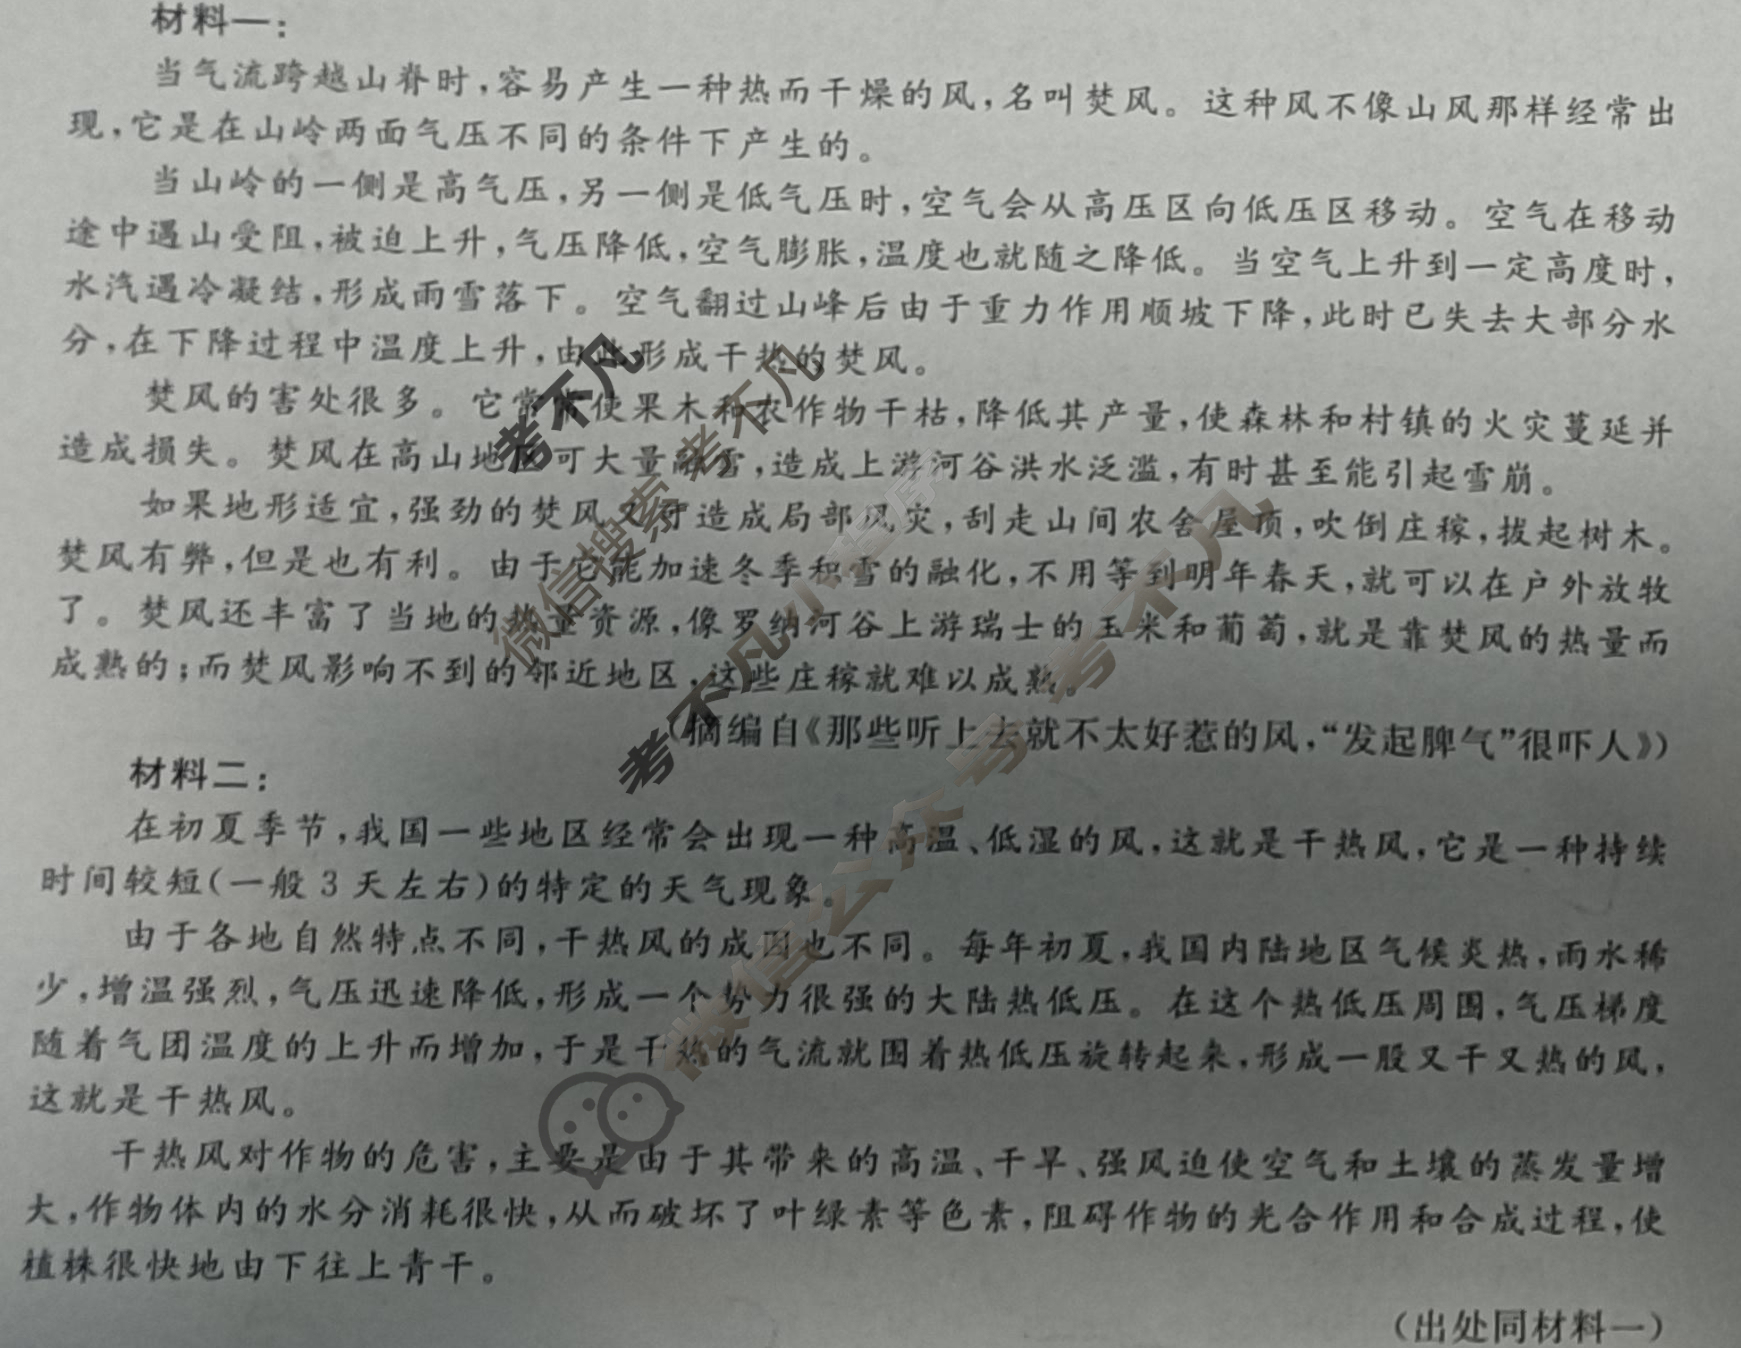 材料一：
当气流跨越山脊时，容易产生一种热而干燥的风，名叫焚风。这种风不像山风那样经常出
现，它是在山岭两面气压不同的条件下产生的。
当山岭的一侧是高气压，另一侧是低气压时，空气会从高压区向低压区移动。空气在移动
途中遇山受阻，被迫上升，气压降低，空气膨胀，温度也就随之降低。当空气上升到一定高度时，
水汽遇冷凝结，形成雨雪落下。空气翻过山峰后由于重力作用顺坡下降，此时已失去大部分水
分，在下降过程中温度上升，由此形成干热的焚风。
焚风的害处很多。它常常使果木和农作物干枯，降低其产量，使森林和村镇的火灾蔓延并
造成损失。焚风在高山地区可大量融雪，造成上游河谷洪水泛滥，有时甚至能引起雪崩。
如果地形适宜，强劲的焚风又可造成局部风灾，刮走山间农舍屋顶，吹倒庄稼，拔起树木。
焚风有弊，但是也有利。由于它能加速冬季积雪的融化，不用等到明年春天，就可以在户外放牧
了。焚风还丰富了当地的热量资源，像罗纳河谷上游瑞士的玉米和葡萄，就是靠焚风的热量而
成熟的；而焚风影响不到的邻近地区，这些庄稼就难以成熟。
（摘编自《那些听上去就不太好惹的风，“发起脾气”很吓人》）
材料二：
在初夏季节，我国一些地区经常会出现一种高温、低湿的风，这就是干热风，它是一种持续
时间较短（一般3天左右）的特定的天气现象。
由于各地自然特点不同，干热风的成因也不同。每年初夏，我国内陆地区气候炎热，雨水稀
少，增温强烈，气压迅速降低，形成一个势力很强的大陆热低压。在这个热低压周围，气压梯度
随着气团温度的上升而增加，于是干热的气流就围着热低压旋转起来，形成一股又干又热的风，
这就是干热风。
干热风对作物的危害，主要是由于其带来的高温、干旱、强风迫使空气和土壤的蒸发量增
大，作物体内的水分消耗很快，从而破坏了叶绿素等色素，阻碍作物的光合作用和合成过程，使
植株很快地由下往上青干。
（出处同材料一）
考不凡
微信搜索 考不凡
考不凡
微信公众号 考不凡